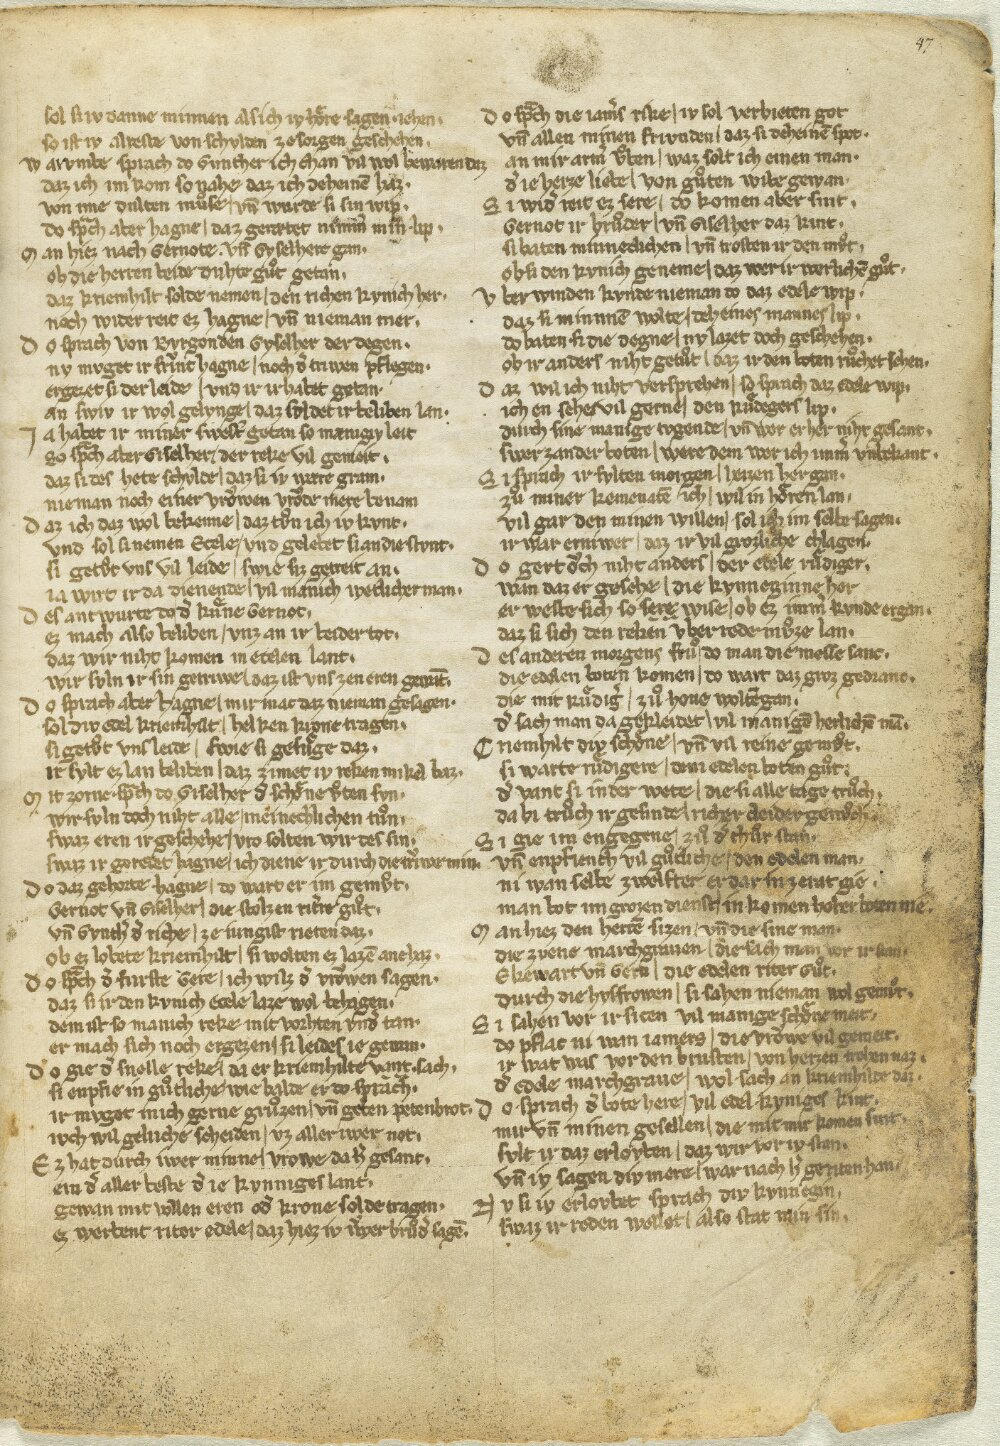 47
sol si iv danne minnen als ich iv hôre sagen iehen.
so ist iv alreste von schvlden ze sorgen geschehen.
W arvmbe sprach do Gvnther ich chan vil wol bewaren daz
daz ich im kom so nahe daz ich deheinē haz.
von ime dulten mvse / vn̄ wurde si sin wip.
do sp̄ch aber hagne / daz geratet nimm̄ min lip.
M an hiez nach Gernote. vn̄ Gyselhere gan.
ob die herren beide duhte gůt getan.
daz kriemhilt solde nemen / den richen kynich her.
noch wider reit ez hagne / vn̄ nieman mer.
D o sprach von Byrgonden Gyselher der degen.
ny myget ir frivnt hagne / noch d̄ triwen pflegen.
ergezet si der leide / vnd ir ir habet getan.
an swiv ir wol gelynge / daz syldet ir beliben lan.
J a habet ir miner swest̄ getan so manigiv leit
So sp̄ch aber Giselher / der reke vil gemeit.
daz si des hete schvlde / daz si iv were gram.
nieman noch einer vrôwen vrôde mere benam
D az ich daz wol bekenne / daz tvn ich iv kvnt.
vnd sol si nemen Ecele / vnd gelebet si an die stvnt.
si getůt vns vil leide / swie siz getreit an.
ia wirt ir da dienende / vil manich wetlicher man.
D es antwurte do d̄ kůne Gernot.
ez mach also beliben / vnz an ir beider tot.
daz wir niht komen in ecelen lant.
wir syln ir sin getriwe / daz ist vns zen eren gewāt.
D o sprach aber hagne / mir mac daz nieman gesagen.
sol div edel kriemhilt / helken krone tragen.
si getůt vns leide / swie si gefůge daz.
ir sylt ez lan beliben / daz zimet iv reken mikel baz.
M it zorne sp̄ch do Giselher d̄ schône vͦten syn.
wir syln doch niht alle / meineclichen tůn.
swaz eren ir geschehe / vro solten wir des sin.
swaz ir geredet hagne / ich diene ir durch die triwe min.
D o daz gehorte hagne / do wart er im gemvͦt.
Gernot vn̄ Giselher / die stolzen riter gůt.
vn̄ Gynth̄ d̄ riche / ze iungist rieten daz.
ob ez lobete kriemhilt / si wolten ez lazē ane haz.
D o sp̄ch d̄ furste Gere / ich wilz d̄ vrôwen sagen.
daz si ir den kynich Ecele laze wol behagen.
dem ist so manich reke mit vorhten vnd̄ tan.
er mach sich noch ergezen / si leides ie gewan.
D o gie d̄ snelle reke / da er kriemhilte vant. sach.
si enpfie in gůtliche / wie balde er do sprach.
ir myget mich gerne grůzen / vn̄ geben petenbrot.
ivch wil gelucke scheiden / vz aller iwer not.
E z hat durch iwer minne / vrowe da h̄ gesant.
ein d̄ aller beste d̄ ie kynniges lant.
gewan mit vollen eren od̄ krone solde tragen.
ez werbent riter edele / daz hiez iv iwer brůd̄ sagē.
D o sp̄ch die iam̄s rike / iv sol verbieten got
vn̄ allen minen frivnden / daz si deheinē spot.
an mir arm̄ vͤben / waz solt ich einen man.
d̄ ie herze liebe / von gůten wibe gewan.
S i wid̄ reit ez sere / do komen aber sint.
Gernot ir brůder / vn̄ Giselher daz kint.
si baten minneclichen / vn̄ trosten ir den mvͦt.
ob si den kynich geneme / daz wer ir werlichē gůt.
V berwinden kynde nieman do daz edele wip.
daz si minnnē wolte / deheines mannes lip.
do baten si die degne / ny lazet doch geschehen.
ob ir anders niht getůt / daz ir den boten růchet sehen.
D az wil ich niht versprechen / so sprach daz edele wip.
ich en sehe vil gerne / den Růdegers lip.
durch sine manige tvgende / vn̄ wer er her niht gesant.
swer zander boten / were dem wer ich imm̄ vnbekant.
S i sprach ir sylten morgen / heizen her gan.
zů miner kemenatē ich / wil in hôren lan.
vil gar den minen willen / sol ich im selbe sagen.
ir war erniwet / daz ir vil grozliche chlagen.
D o gert ôch niht anders / der edele růdiger.
wan daz er gesehe / die kynneginne her
er weste sich so sere wise / ob ez imm̄ kynde ergan.
daz si sich den reken vber rede mvͦze lan.
D es anderen morgens frů / do man die messe sanc.
die edelen boten komen / do wart daz groz gedranc.
die mit Růdig̓ / zů houe woltē gan.
d̄ sach man da gekleidet / vil manigē herlichē mā.
C riemhilt div schône / vn̄ vil reine gemvͦt.
si warte růdigere / dem edelen boten gůt.
d̄ vant si in der wete / die si alle tage trůch.
da bi trůch ir gesinde / richer cleider genvͦch.
S i gie im engegene / zů d̄ chur stan.
vn̄ enpfiench vil gůtliche / den edelen man.
ni wan selbe zwelfter er dar in zerat gie.
man bot im grozen dienst / in komen hoher boten nie.
M an hiez den herrē sizen / vn̄ die sine man.
die zvene marchgrauen / die sach man vor ir stan.
Ekewart vn̄ Gern / die edelen riter gůt.
durch die hvsfrowen / si sahen nieman wol gemůt.
S i sahen vor ir sicen vil manige schône meit.
do pflac ni wan iamers / die vrôwe vil gemeit.
ir wat was vor den brusten / von herzen trehen naz.
d̄ edele marchgraue / wol sach an kriemhilde daz.
D o sprach d̄ bote here / vil edel kyniges kint.
mir vn̄ minen gesellen / die mit mir komen sint.
sylt ir daz erlovben / daz wir vor iv stan.
vn̄ iv sagen div mere / war nach h̄ geriten han.
N v si iv erlovbet sprach div kynnegin,
swaz ir reden wollet / also stat min sin.